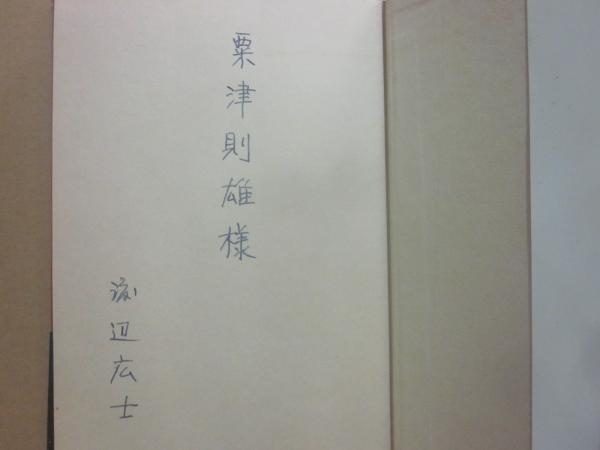 粟津則雄様
渡辺広士